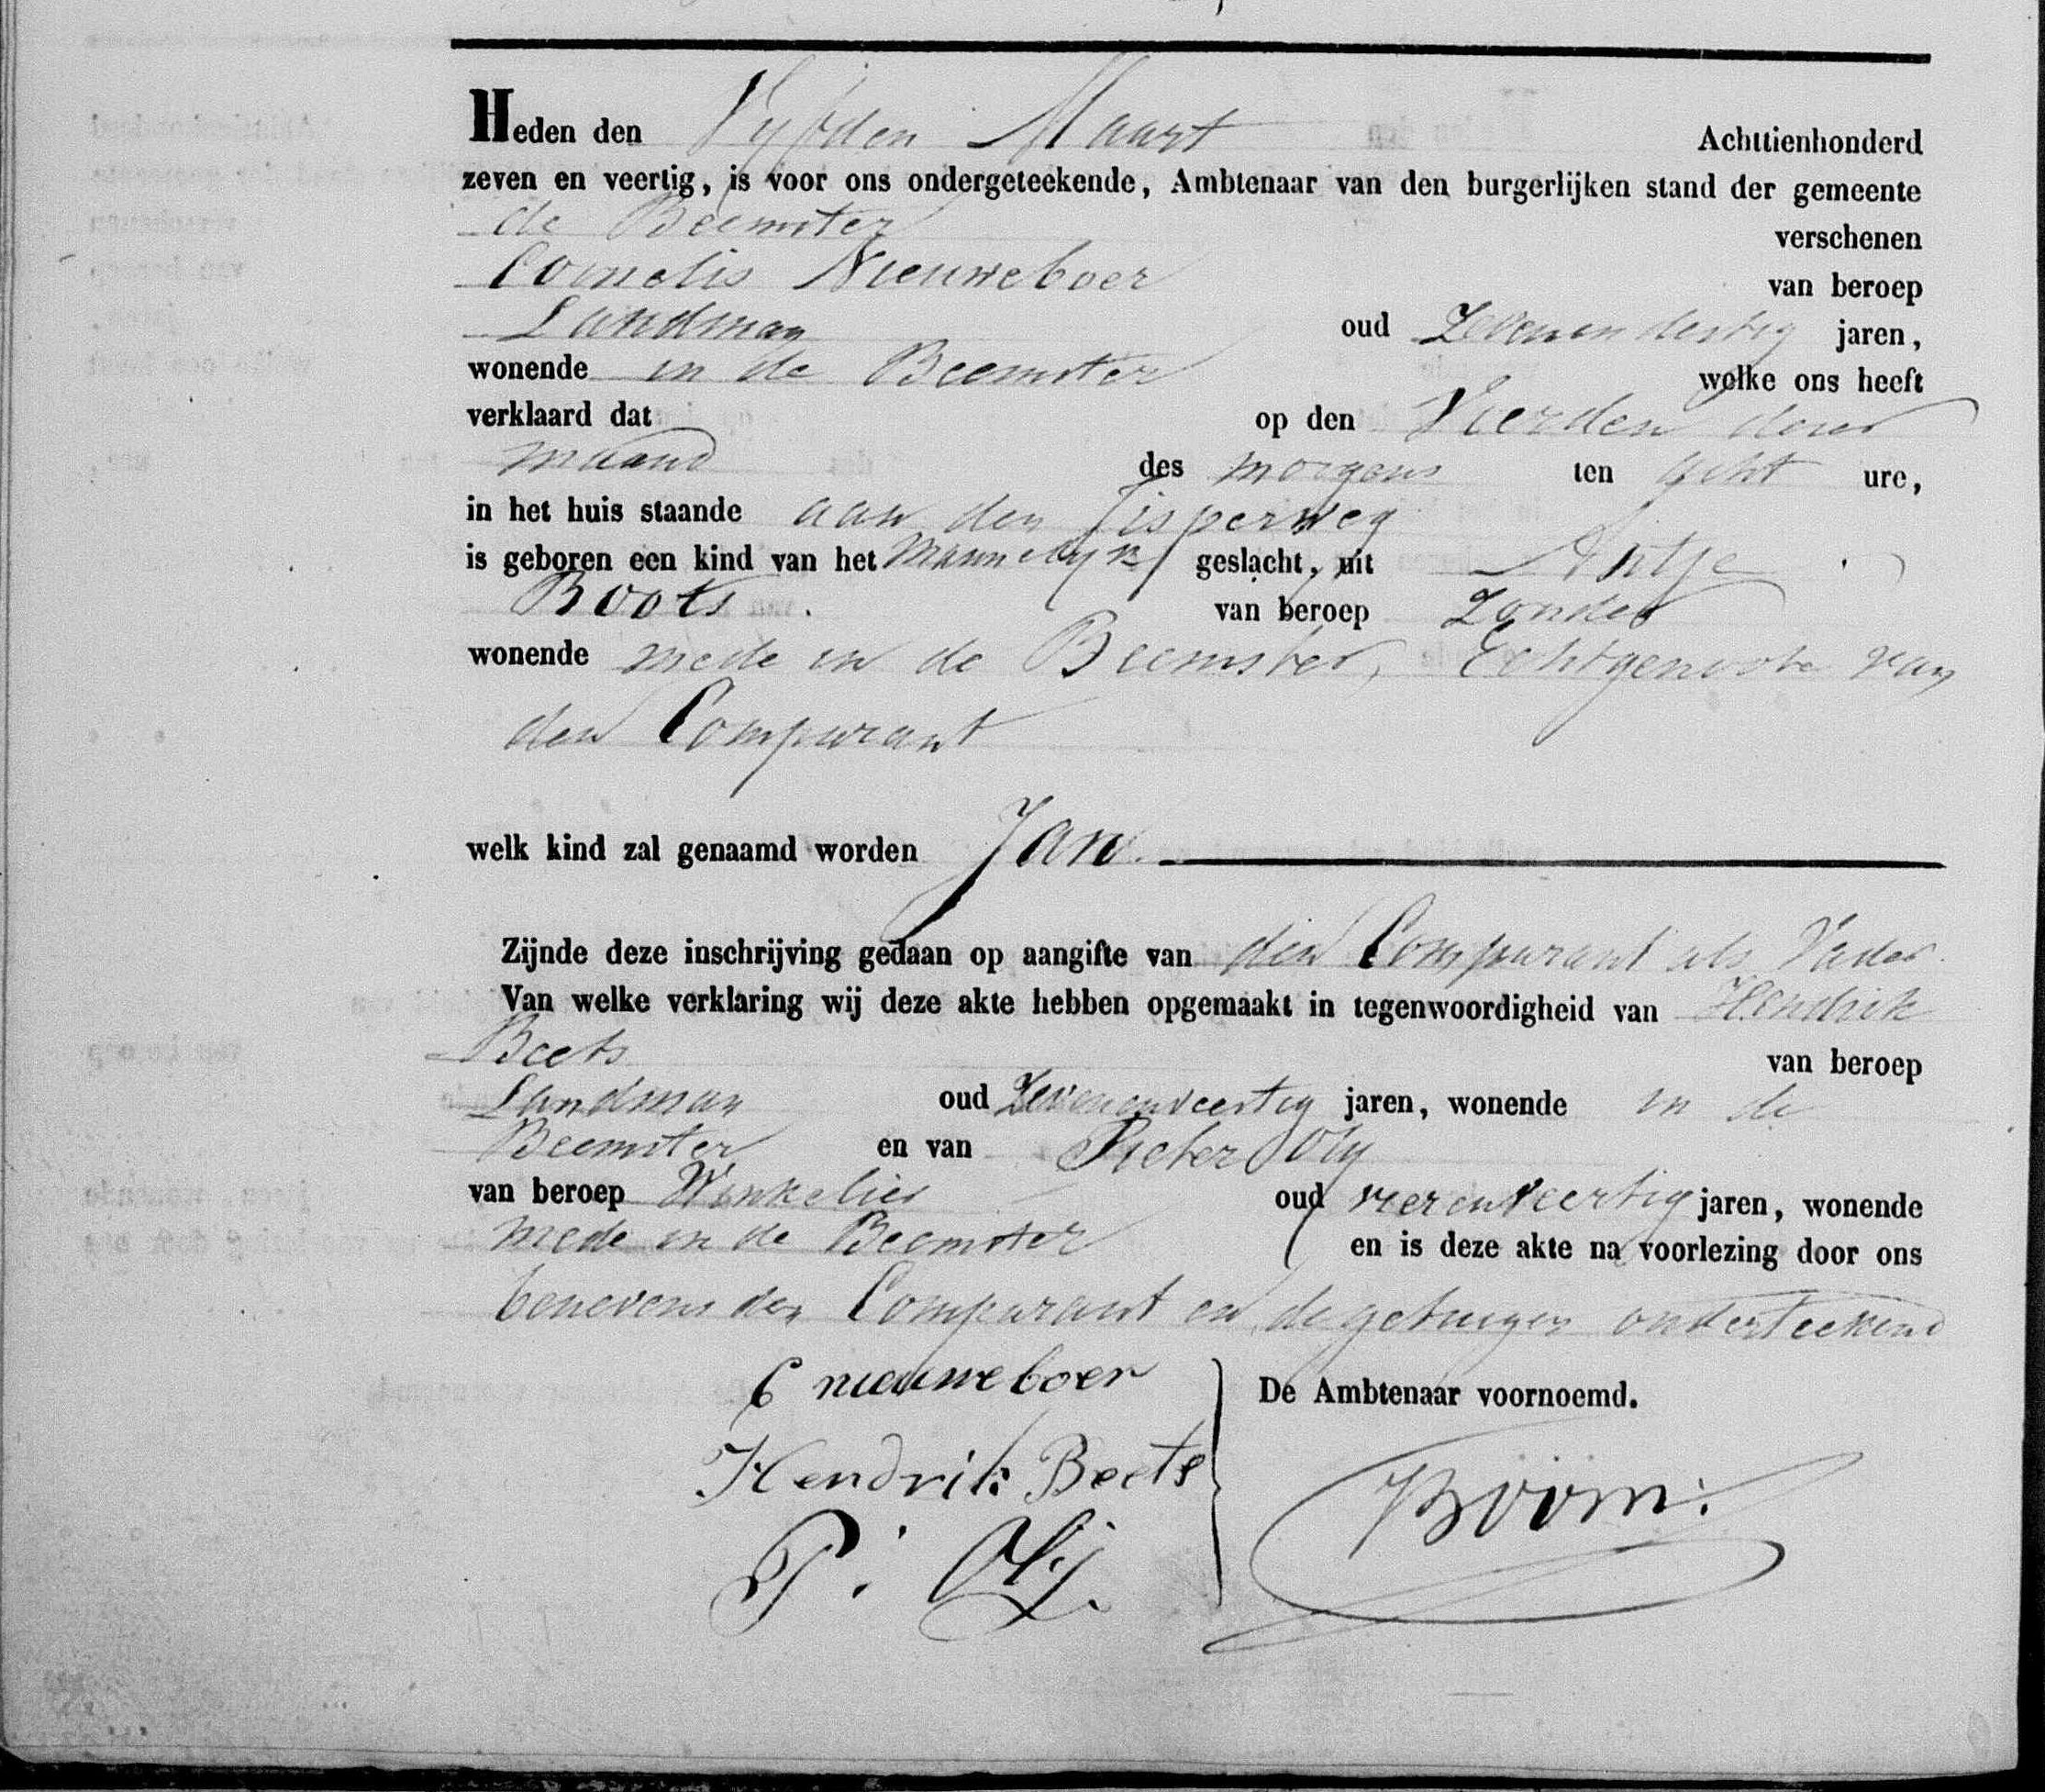 Heden den Vyfden Maart Achttienhonderd
zeven en veertig, is voor ons ondergeteekende, Ambtenaar van den burgerlijken stand der gemeente
de Beemster verschenen
Cornelis Nieuweboer van beroep
Landman oud Zevenendertig jaren,
wonende in de Beemster welke ons heeft
verklaard dat op den Vierden dezer
maand des morgens ten acht ure,
in het huis staande aan den Jisperweg
is geboren een kind van het Mannelyk geslacht, uit Antje
Boots. van beroep Zonder
wonende mede in de Beemster, Echtgenoote van
den Comparant
welk kind zal genaamd worden Jan.
Zijnde deze inschrijving gedaan op aangifte van den Comparant als Vader
Van welke verklaring wij deze akte hebben opgemaakt in tegenwoordigheid van Hendrik
Beets van beroep
Landman oud Zevenenveertig jaren, wonende in de
Beemster en van Pieter Oly
van beroep Winkelier oud vierenveertig jaren, wonende
mede in de Beemster en is deze akte na voorlezing door ons
benevens den Comparant en de getuigen onderteekend
C nieuweboer De Ambtenaar voornoemd.
Hendrik Beets Boom.
P. Olij.